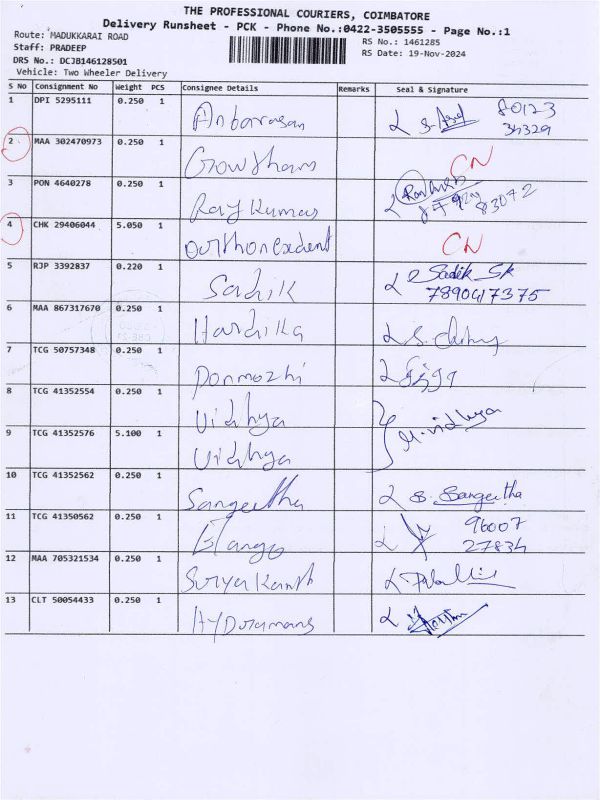 THE PROFESSIONAL COURIERS, COIMBATORE
Delivery Runsheet - PCK - Phone No.:0422-3505555 - Page No.:1
Route: MADUKKARAI ROAD
RS No.: 1461285
Staff: PRADEEP
RS Date: 19-Nov-2024
DRS No.: DCJB146128501
Vehicle: Two Wheeler Delivery
S No Consignment No Weight PCS Consignee Details Remarks Seal & Signature
1 DPI 5295111 0.250 1 Anbarasan 80123
34329
2 MAA 302470973 0.250 1 Gowtham CN
3 PON 4640278 0.250 1 Raj Kumar
83072
4 CHK 29406044 5.050 1 CN
5 RJP 3392837 0.220 1 Sadik Sadik Sk
7890417375
6 MAA 867317670 0.250 1 Hardika
7 TCG 50757348 0.250 1 Ponmozhi
8 TCG 41352554 0.250 1 Vidhya M. vidhya
9 TCG 41352576 5.100 1 Vidhya
10 TCG 41352562 0.250 1 Sangeetha S. Sangeetha
11 TCG 41350562 0.250 1 Elango 96007
27834
12 MAA 705321534 0.250 1 Surya Kanth
13 CLT 50054433 0.250 1